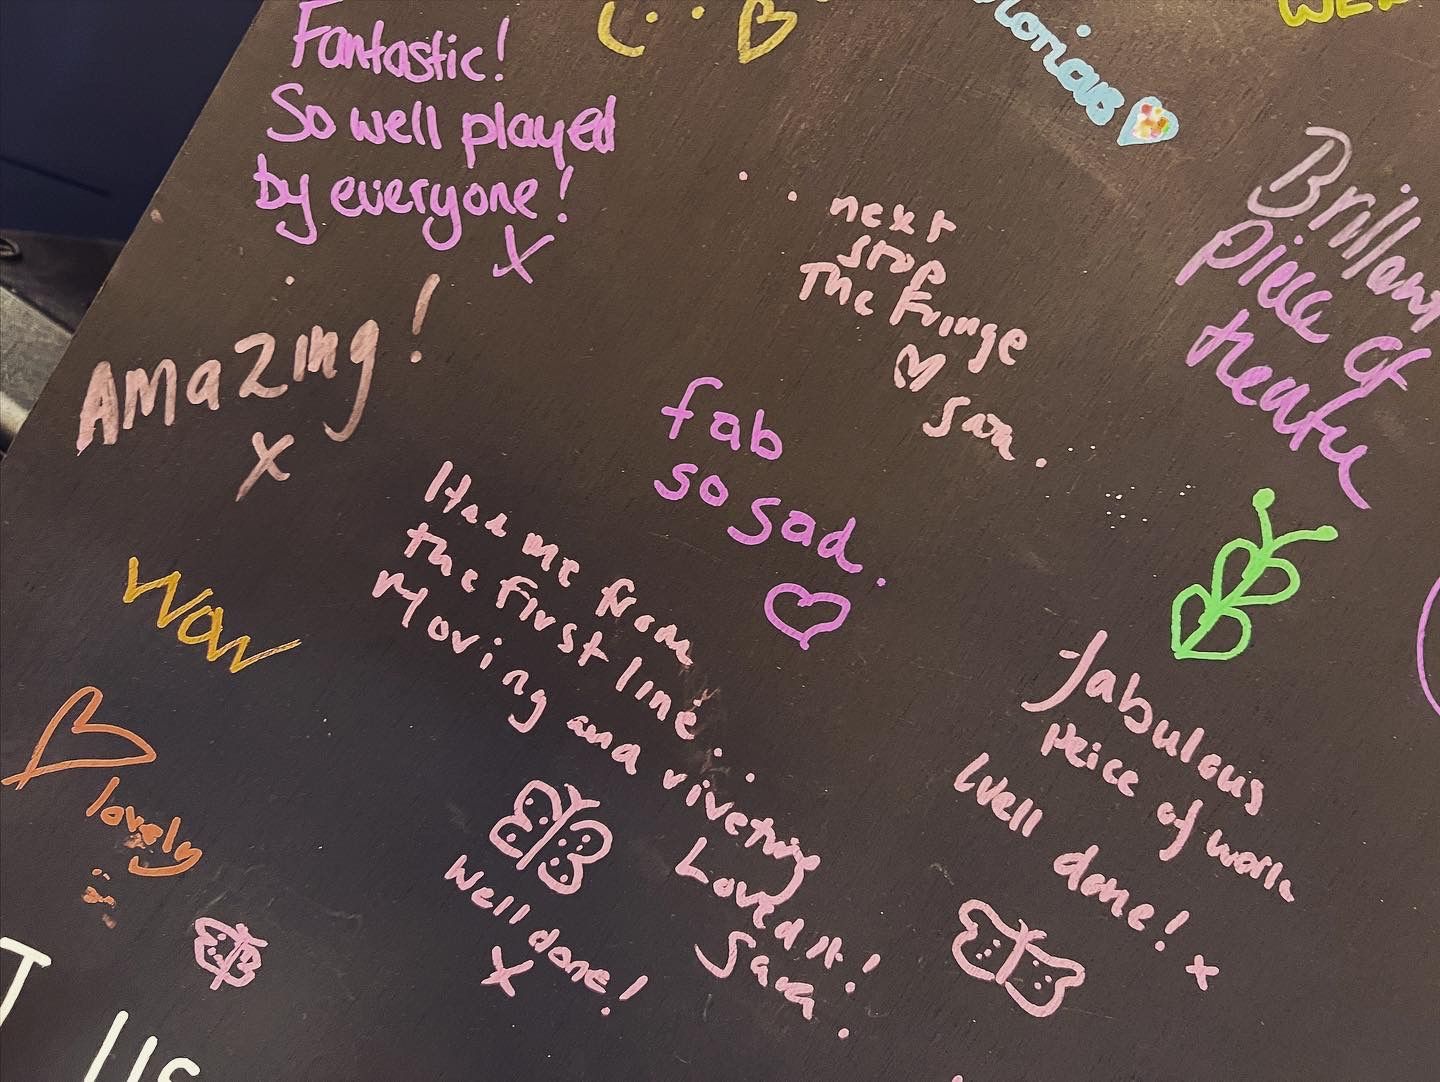 Fantastic!
So well played
by everyone!
x
Amazing!
x
next
stop
The Fringe
Brilliant
piece of
theatre
fab
so sad.
Had me from
the first line..
Moving and riveting
Loved it!
Sara
Well done!
x
WOW
lovely
fabulous
peice of work
Well done!
x
T
Us